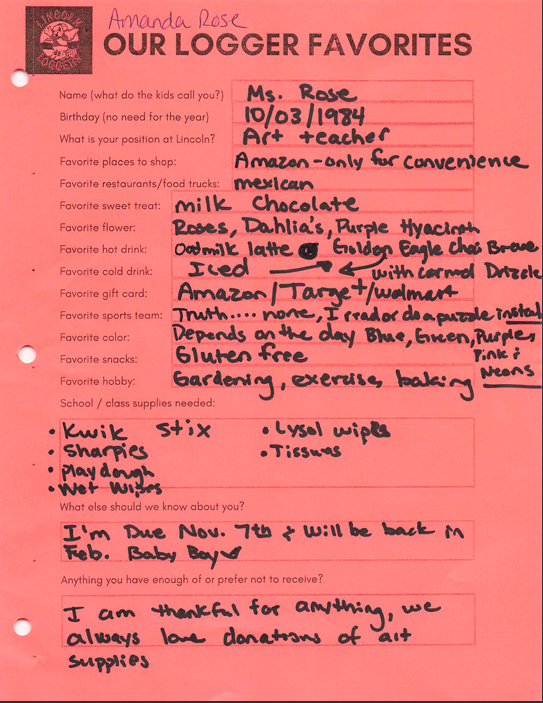 Amanda Rose
LINCOLN
LOGGERS
OUR LOGGER FAVORITES
Name (what do the kids call you?) Ms. Rose
Birthday (no need for the year) 10/03/1984
What is your position at Lincoln? Art teacher
Favorite places to shop: Amazon - only for convenience
Favorite restaurants/food trucks: mexican
Favorite sweet treat: milk Chocolate
Favorite flower: Roses, Dahlia's, Purple Hyacinth
Favorite hot drink: Oatmilk latte Golden Eagle Chai Breve
Favorite cold drink: Iced with carmel Drizzle
Favorite gift card: Amazon/Target/walmart
Favorite sports team: Truth.... none, I read or do a puzzle instead
Favorite color: Depends on the day Blue, Green, Purples
Pink &
Neons
Favorite snacks: Gluten free
Favorite hobby: Gardening, exercise, baking
School / class supplies needed:
• Kwik Stix • Lysol wipes
• Sharpies • Tissues
• Playdough
• Wet Wipes
What else should we know about you?
I'm Due Nov. 7th & will be back in
Feb. Baby Boy
Anything you have enough of or prefer not to receive?
I am thankful for anything, we
always love donations of art
supplies